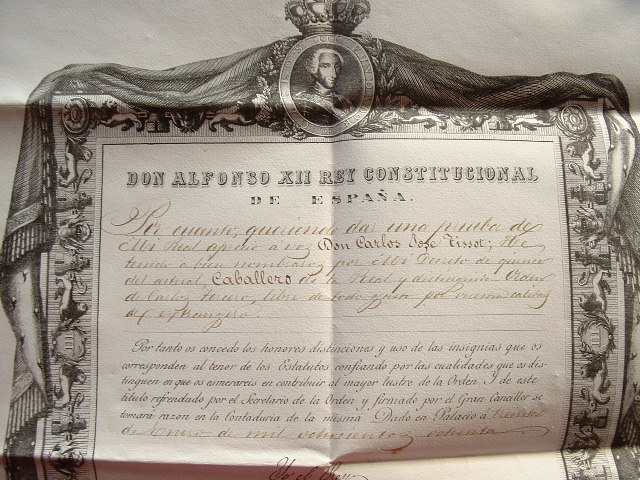 DON ALFONSO XII REY CONSTITUCIONAL
DE ESPAÑA.
Por cuanto, queriendo dar una prueba de
Mi Real aprecio a vos, Don Carlos José Tissot; He
tenido a bien nombraros, por Mi Decreto de quince
del actual, Caballero de la Real y distinguida Orden
de Carlos Tercero, libre de todo gasto por vuestra calidad
de extrangero.
Por tanto os concedo los honores distinciones y uso de las insignias que os
corresponden al tenor de los Estatutos confiando por las cualidades que os dis-
tinguen en que os esmerareis en contribuir al mayor lustre de la Orden. Y de este
título refrendado por el Secretario de la Orden y firmado por el Gran Canciller se
tomará razon en la Contaduría de la misma. Dado en Palacio á treinta
de Enero de mil ochocientos ochenta
Yo el Rey